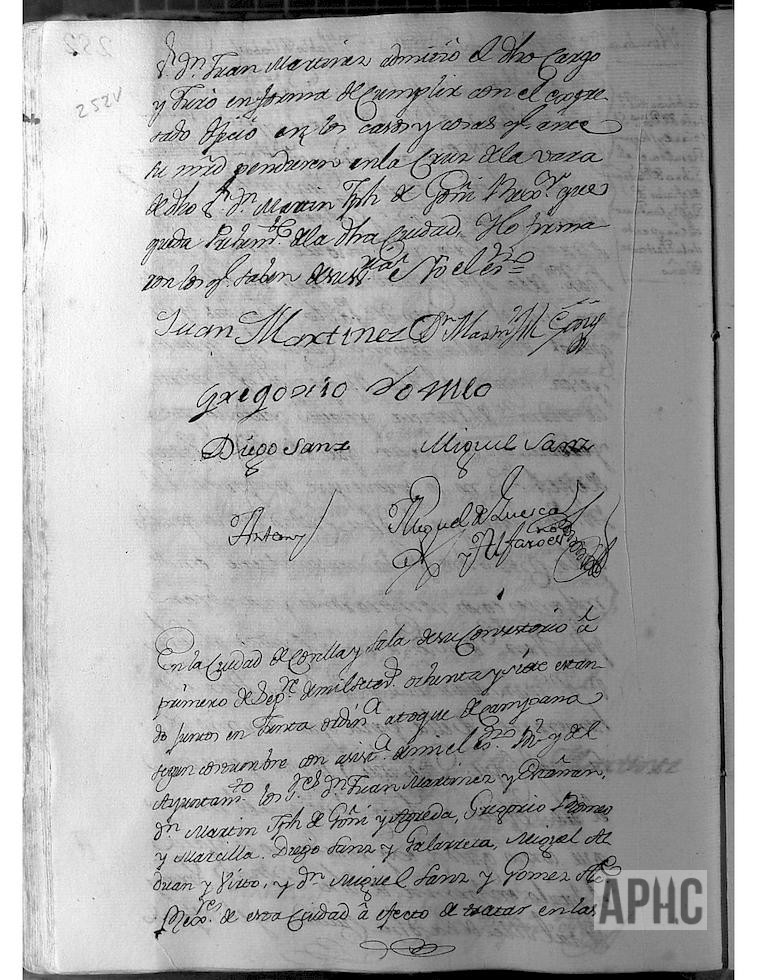 252V
Sr. Dn. Juan Martinez admitió el dho Cargo
y Juró en forma de cumplir con el expre
sado oficio en los casos y cosas q.e ante
su mrd pendieren en la Cruz de la vara
de dho Sr. Dn. Martin Jph de Goñi Rexor. que
queda Ental de la dha Ciudad. Yo firma
ron los q.e saben de sus e Yo el essno
Juan Martinez Dn. Martin Jph Goñi
Gregorio Romeo
Diego Sanz Miguel Sanz
Antemy
Miguel de Luesca
y Alfaro essno
En la Ciudad de Corella y Sala de su Consistorio â
primero de Sepre. de mil setes. ochenta y siete estan
do juntos en Junta ordina. a toque de campana
segun costumbre con asista. de mi el essno R.l y del
Ayuntamto. los Sres. Dn. Juan Martinez y
Dn. Martin Jph de Goñi y Agreda, Gregorio Romeo
y Marcilla. Diego Sanz y Galarreta, Miguel Al
duan y Virto, y Dn. Miguel Sanz y Gomez Alce
Rexes. de esta Ciudad â efecto de tratar en las
APHC